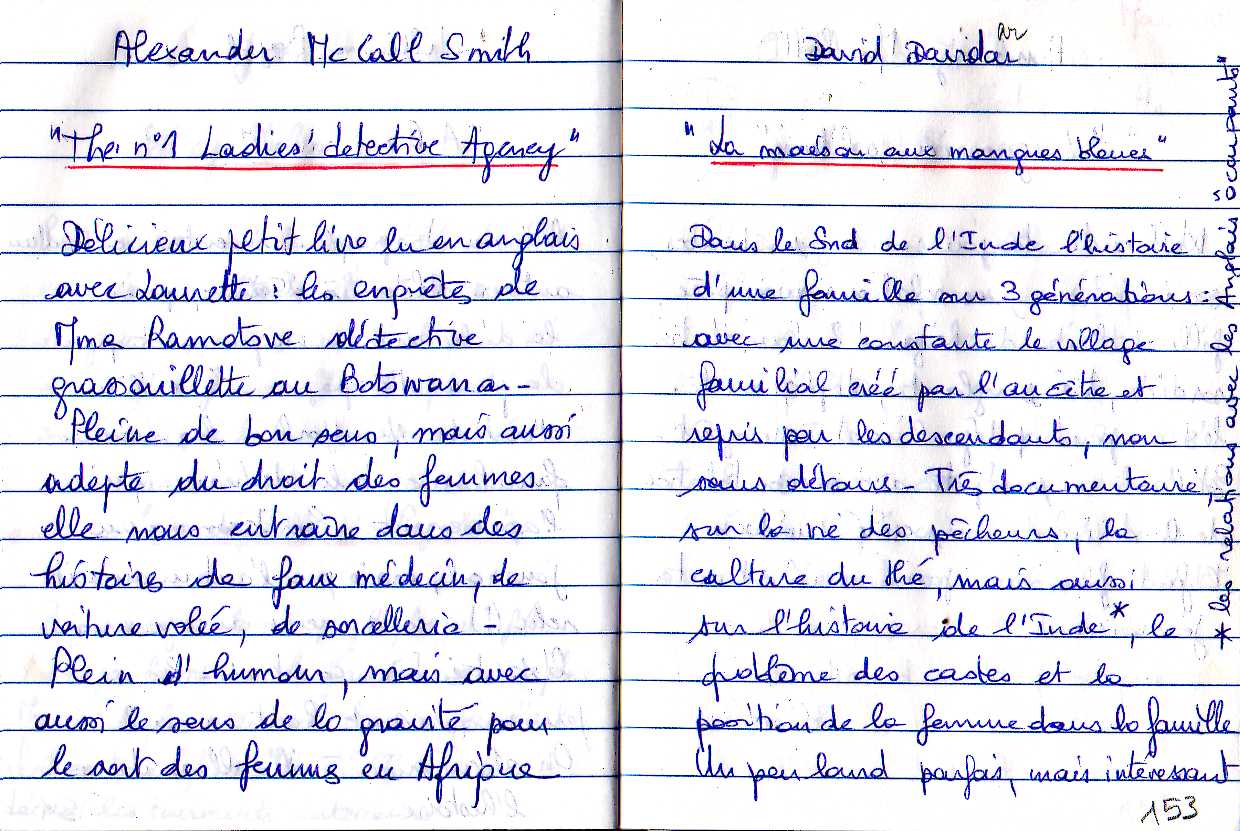 Alexander Mc Call Smith
"The n°1 Ladies' detective Agency"
Délicieux petit livre lu en anglais
avec Laurette : les enquêtes de
Mma Ramotswe détective
grassouillette au Botswana –
Pleine de bon sens, mais aussi
adepte du droit des femmes
elle nous entraîne dans des
histoires de faux médecin, de
voiture volée, de sorcellerie –
Plein d'humour, mais avec
aussi le sens de la gravité pour
le sort des femmes en Afrique
David Davidar
ar
"La maison aux mangues bleues"
Dans le Sud de l'Inde l'histoire
d'une famille sur 3 générations :
avec une constante le village
familial créé par l'ancêtre et
repris par les descendants, non
sans détours – Très documentaire,
sur la vie des pêcheurs, la
culture du thé, mais aussi
sur l'histoire de l'Inde*, le
problème des castes et la
position de la femme dans la famille
Un peu lourd parfois, mais intéressant
* les relations avec les Anglais "occupants"
153